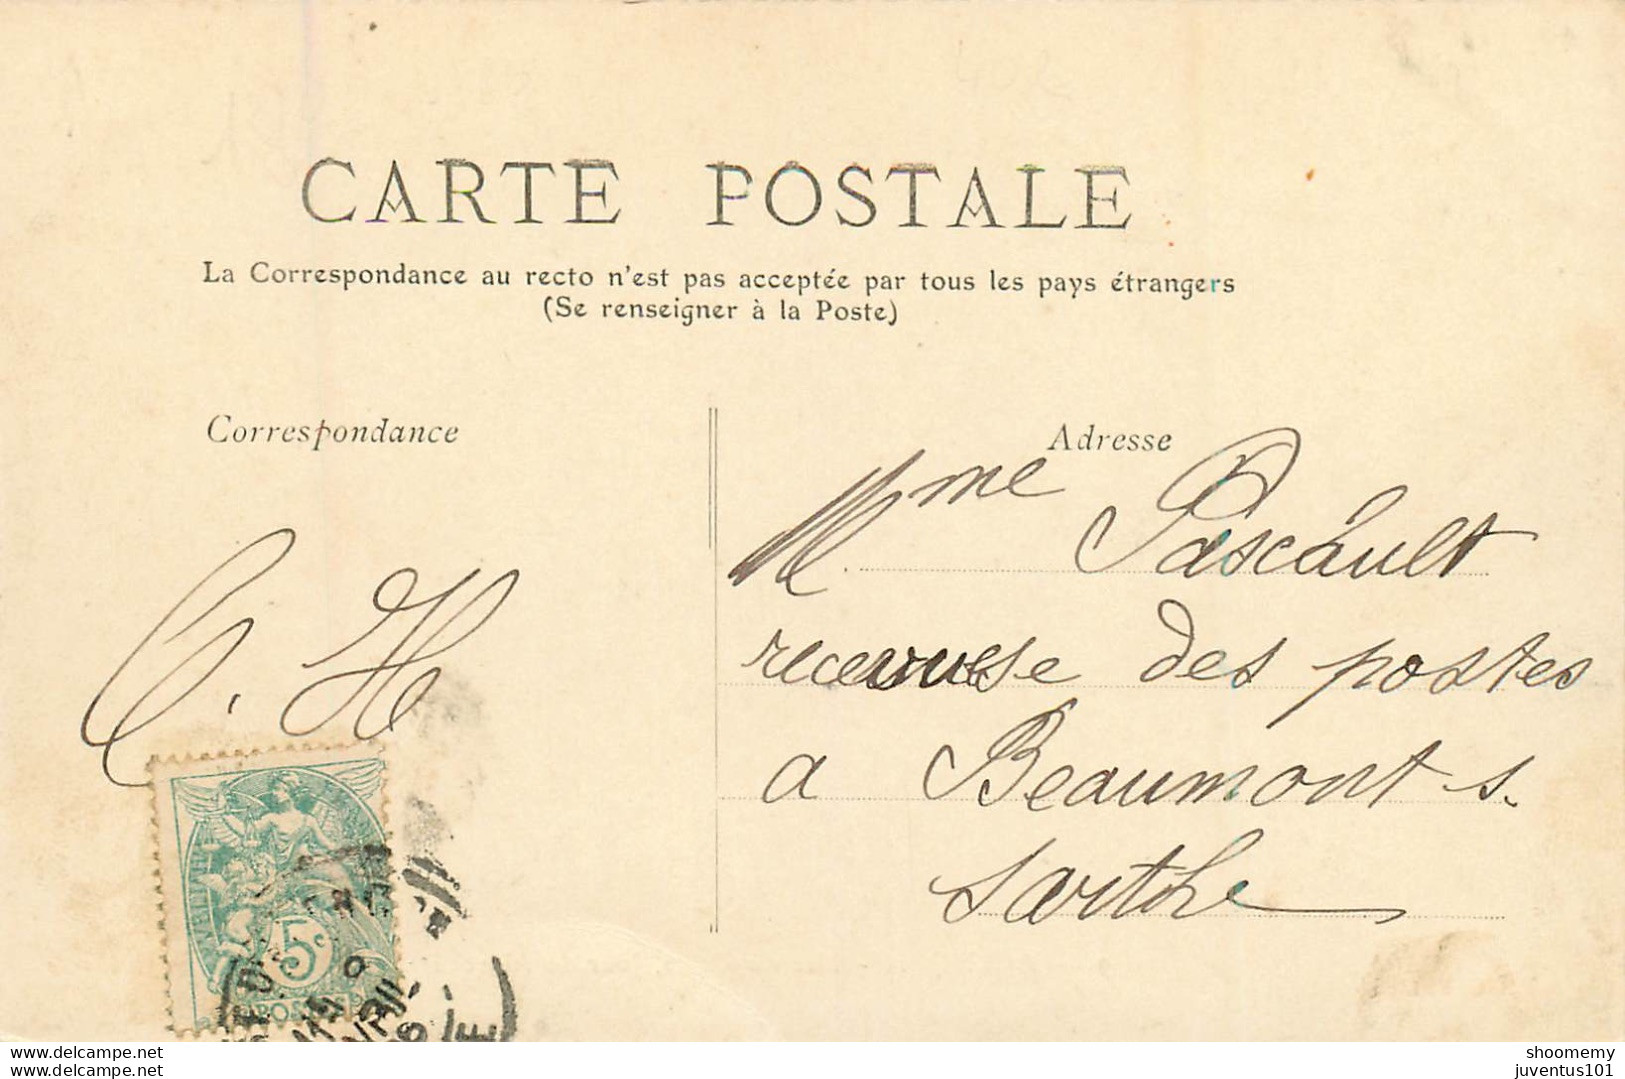 CARTE POSTALE
La Correspondance au recto n'est pas acceptée par tous les pays étrangers
(Se renseigner à la Poste)
Correspondance
Adresse
Mme Pascault
receveuse des postes
a Beaumont s.
Sarthe
C. H
5c
POSTES
www.delcampe.net
www.delcampe.net
shoomemy
juventus101